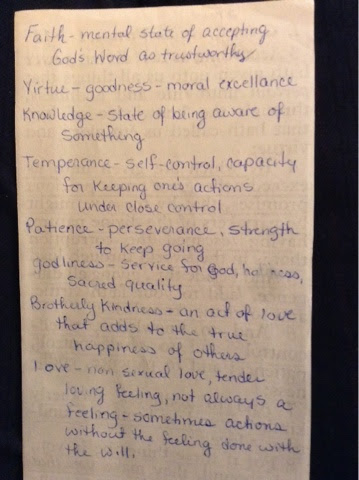 Faith - mental state of accepting
God's Word as trustworthy
Virtue - goodness - moral excellance
Knowledge - State of being aware of
Something
Temperance - self-control, capacity
for keeping one's actions
under close control
Patience - perseverance, strength
to keep going
godliness - service for God, holiness,
sacred quality
Brotherly Kindness - an act of love
that adds to the true
happiness of others
Love - non sexual love, tender
loving feeling, not always a
feeling - sometimes actions
without the feeling done with
the will.